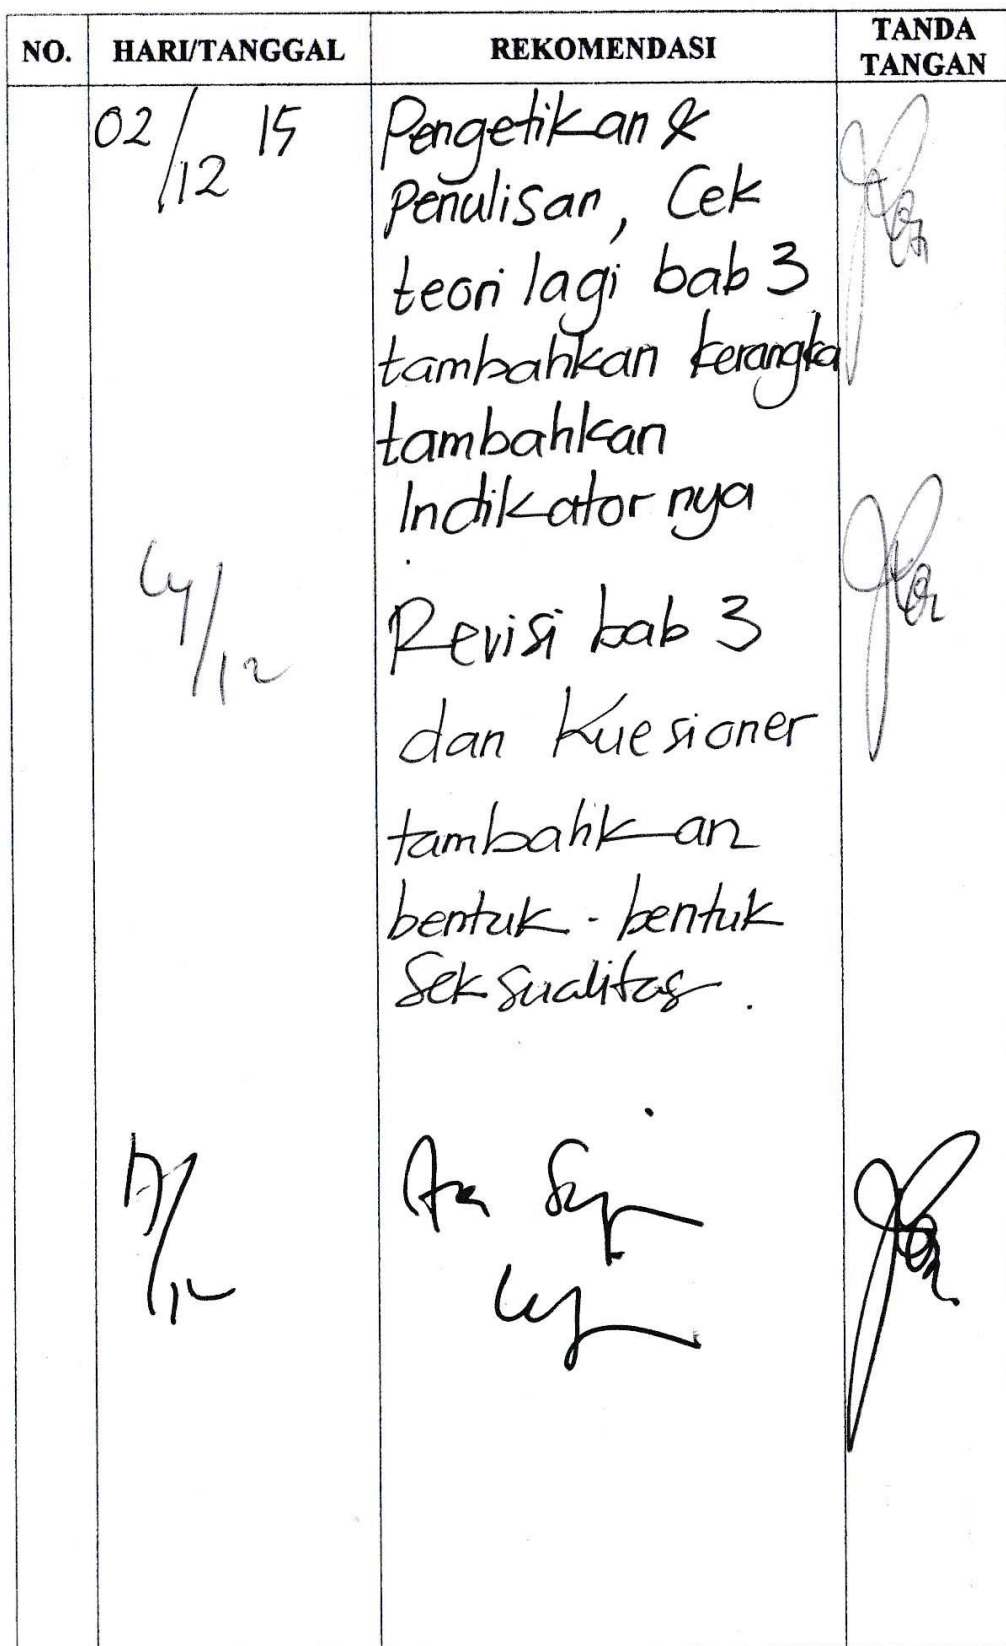 NO. HARI/TANGGAL REKOMENDASI TANDA TANGAN
02/12 15 Pengetikan &
Penulisan, Cek
teori lagi bab 3
tambahkan kerangka
tambahkan
Indikator nya
Revisi bab 3
dan Kuesioner
tambahkan
bentuk - bentuk
Seksualitas.